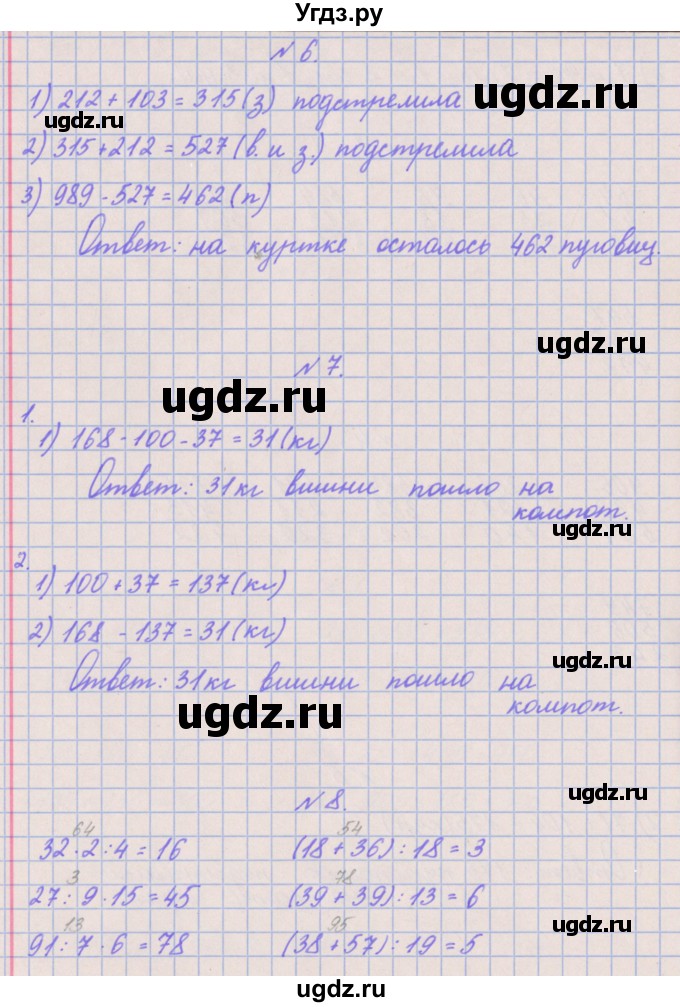 Угдз.ру
N 6.
1) 212 + 103 = 315 (з) подстрелила
ugdz.ru
ugdz.ru
2) 315 + 212 = 527 (в. и з.) подстрелила
3) 989 - 527 = 462 (п)
Ответ: на куртке осталось 462 пуговиц.
ugdz.ru
N 7.
ugdz.ru
1.
1) 168 - 100 - 37 = 31 (кг)
Ответ: 31 кг вишни пошло на
компот.
ugdz.ru
2.
1) 100 + 37 = 137 (кг)
2) 168 - 137 = 31 (кг)
ugdz.ru
Ответ: 31 кг вишни пошло на
компот.
ugdz.ru
N 8.
ugdz.ru
64 54
32 · 2 : 4 = 16 (18 + 36) : 18 = 3
3 78
27 : 9 · 15 = 45 (39 + 39) : 13 = 6
13 95
ugdz.ru
91 : 7 · 6 = 78 (38 + 57) : 19 = 5
ugdz.ru